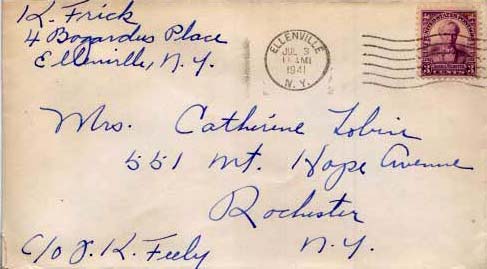 K. Frick
4 Bogardus Place
Ellenville, N.Y.
ELLENVILLE
JUL 3
1941
N.Y.
3 CENTS 3
Mrs. Catherine Tobin
551 Mt. Hope Avenue
Rochester
N.Y.
c/o J. K. Feely